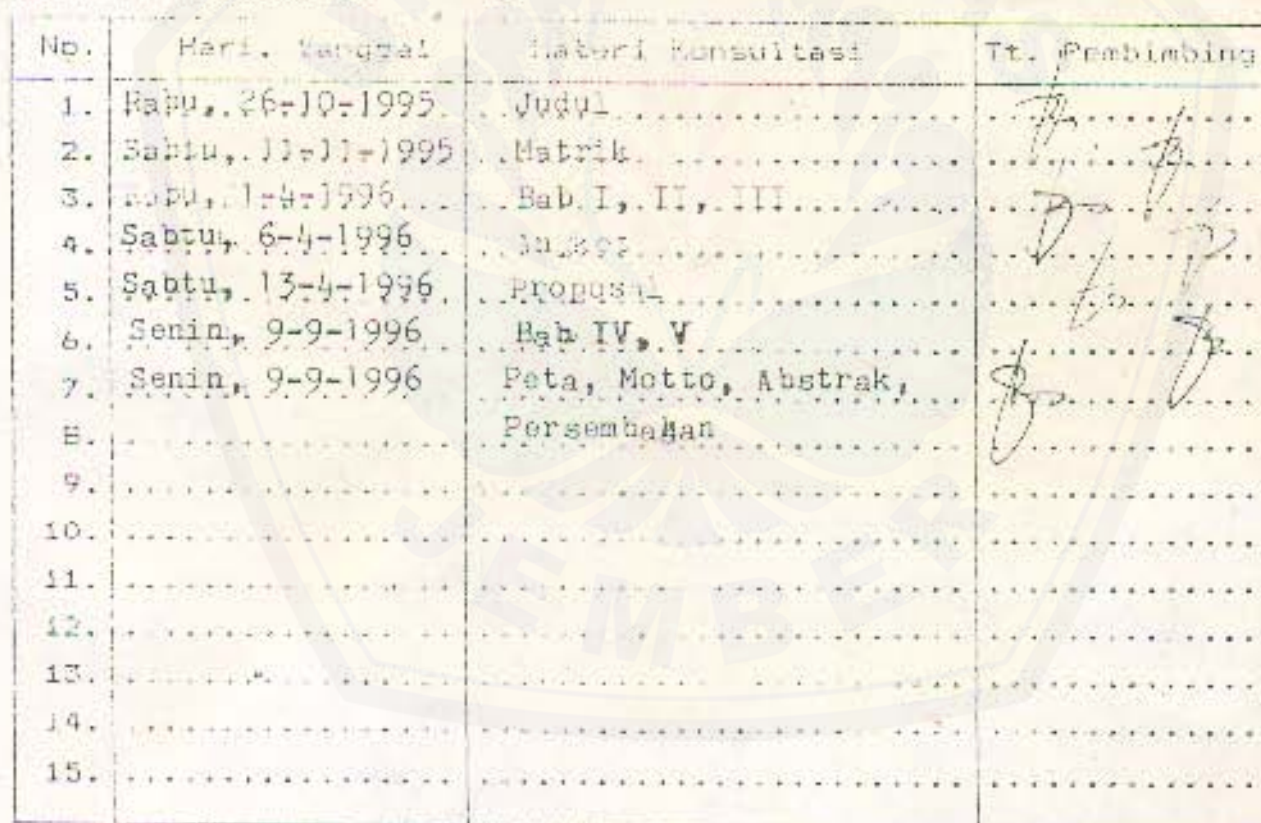 No. Hari. Tanggal Materi Konsultasi Tt. Pembimbing
1. Rabu, 26-10-1995 Judul
2. Sabtu, 11-11-1995 Matrik
3. Rabu, 1-4-1996 Bab I, II, III
4. Sabtu, 6-4-1996
5. Sabtu, 13-4-1996 Proposal
6. Senin, 9-9-1996 Bab IV, V
7. Senin, 9-9-1996 Peta, Motto, Abstrak,
8. Persembahan
9.
10.
11.
12.
13.
14.
15.
JEMBER